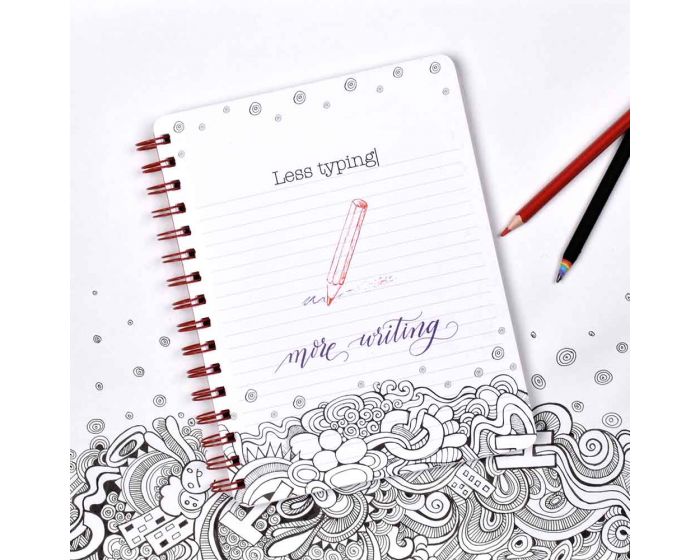 Less typing|
more writing